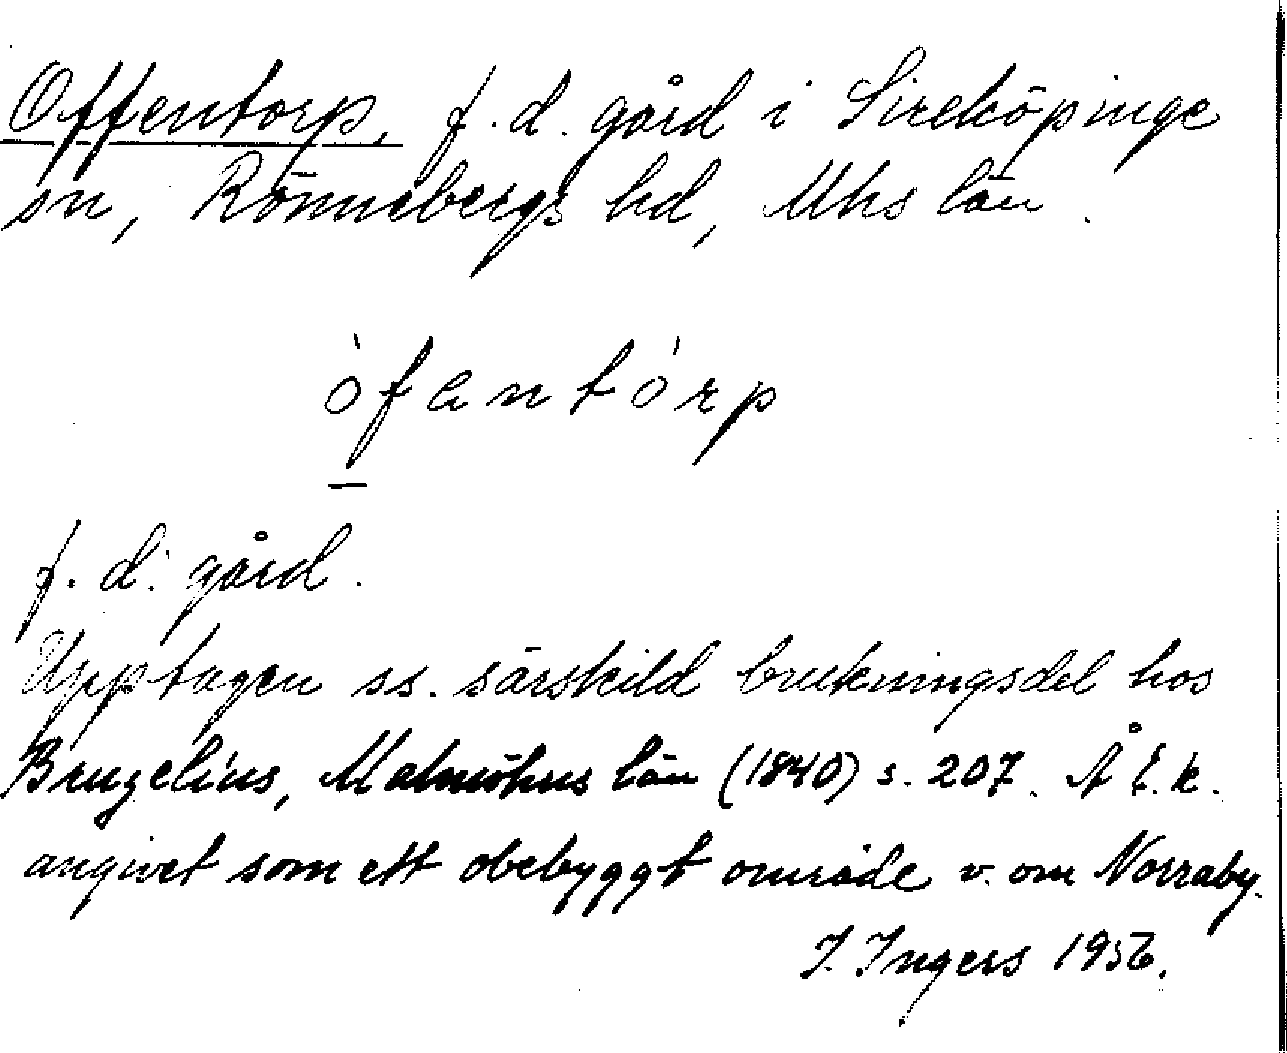 Offentorp, f.d. gård i Sireköpinge
sn, Rönnebergs hd, Mhs län.
òfentòrp
f.d. gård.
Upptagen ss. särskild brukningsdel hos
Bruzelius, Malmöhus län (1840) s. 207. Å E.k.
angivet som ett obebyggt område v. om Norraby.
I. Ingers 1956.